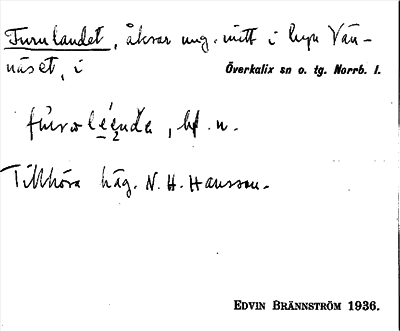 Furulandet, åkrar ung. mitt i byn Vän-
näset, i Överkalix sn o. tg. Norrb. l.
bf. n.
Tillhöra häg. N. H. Hansson.
EDVIN BRÄNNSTRÖM 1936.